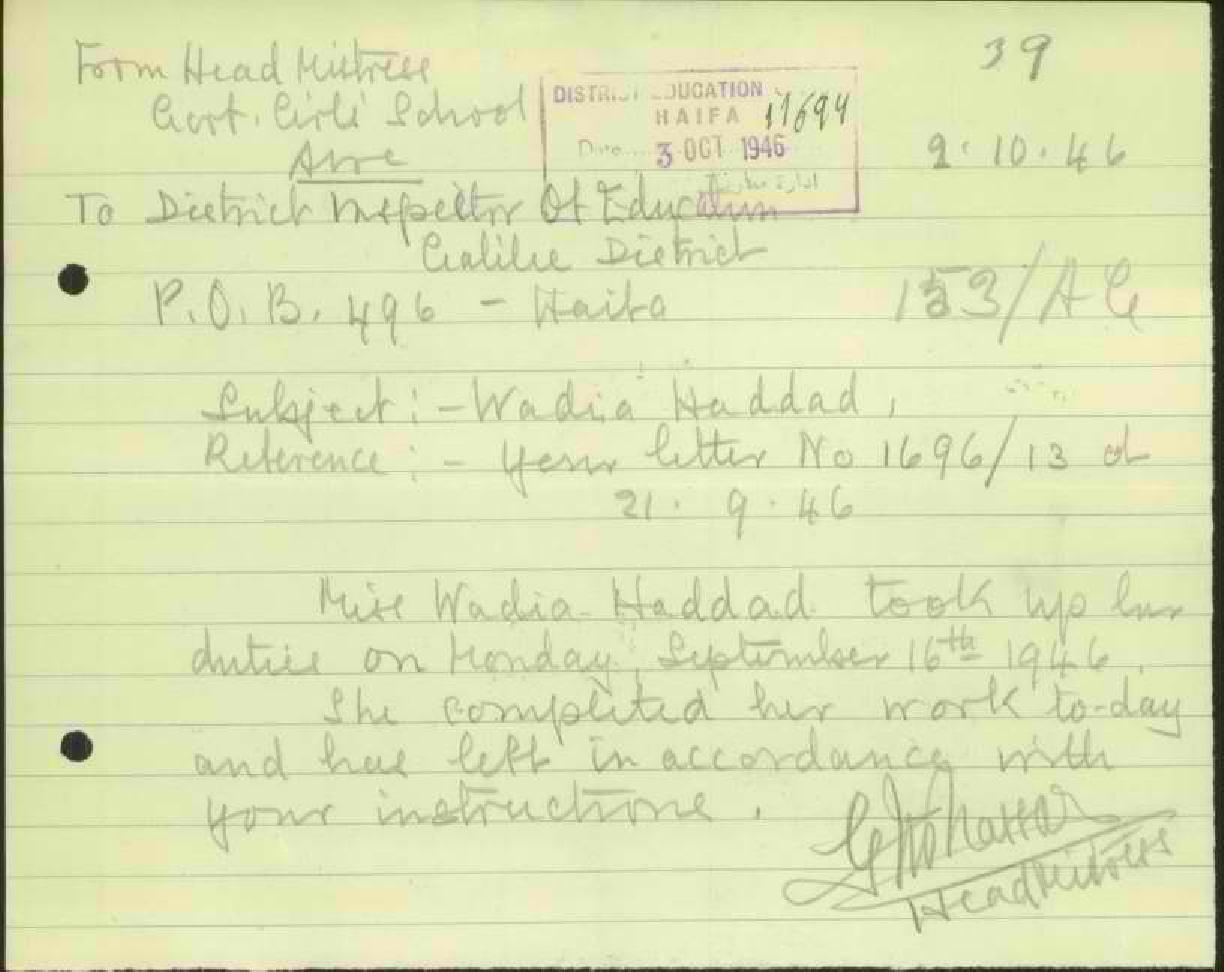 39
Form Head Mistress
Govt. Girls' School
Acre
DISTRICT EDUCATION
HAIFA 11694
Date 3 OCT 1946
2.10.46
To District Inspector Of Education
Galilee District
P.O.B. 496 - Haifa
153/AG
Subject:- Wadia Haddad,
Reference:- Your letter No 1696/13 of
21.9.46
Miss Wadia Haddad took up her
duties on Monday, September 16th 1946.
She completed her work to-day
and has left in accordance with
your instructions.
Head Mistress